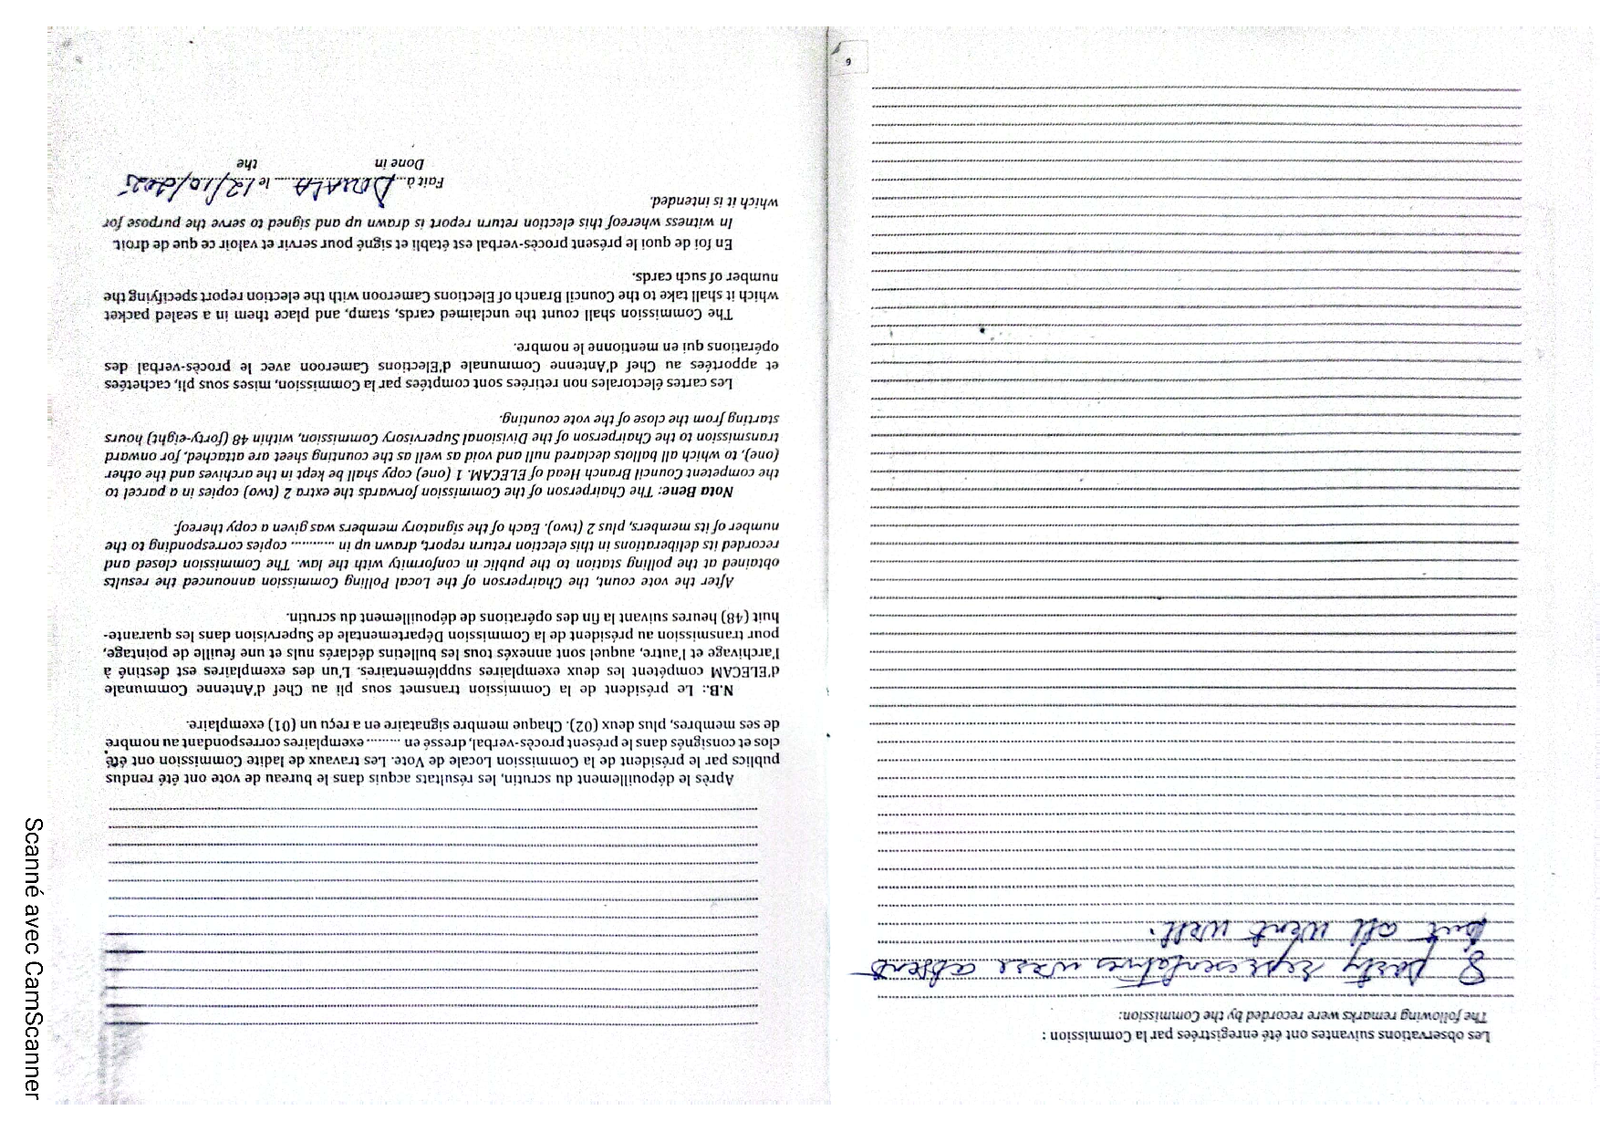 Les observations suivantes ont été enregistrées par la Commission :
The following remarks were recorded by the Commission:
8 party representatives were absent
but all went well.
6
Après le dépouillement du scrutin, les résultats acquis dans le bureau de vote ont été rendus
publics par le président de la Commission Locale de Vote. Les travaux de ladite Commission ont été
clos et consignés dans le présent procès-verbal, dressé en ......... exemplaires correspondant au nombre
de ses membres, plus deux (02). Chaque membre signataire en a reçu un (01) exemplaire.
N.B.: Le président de la Commission transmet sous pli au Chef d'Antenne Communale
d'ELECAM compétent les deux exemplaires supplémentaires. L'un des exemplaires est destiné à
l'archivage et l'autre, auquel sont annexés tous les bulletins déclarés nuls et une feuille de pointage,
pour transmission au président de la Commission Départementale de Supervision dans les quarante-
huit (48) heures suivant la fin des opérations de dépouillement du scrutin.
After the vote count, the Chairperson of the Local Polling Commission announced the results
obtained at the polling station to the public in conformity with the law. The Commission closed and
recorded its deliberations in this election return report, drawn up in ............ copies corresponding to the
number of its members, plus 2 (two). Each of the signatory members was given a copy thereof.
Nota Bene: The Chairperson of the Commission forwards the extra 2 (two) copies in a parcel to
the competent Council Branch Head of ELECAM. 1 (one) copy shall be kept in the archives and the other
(one), to which all ballots declared null and void as well as the counting sheet are attached, for onward
transmission to the Chairperson of the Divisional Supervisory Commission, within 48 (forty-eight) hours
starting from the close of the vote counting.
Les cartes électorales non retirées sont comptées par la Commission, mises sous pli, cachetées
et apportées au Chef d'Antenne Communale d'Elections Cameroon avec le procès-verbal des
opérations qui en mentionne le nombre.
The Commission shall count the unclaimed cards, stamp, and place them in a sealed packet
which it shall take to the Council Branch of Elections Cameroon with the election report specifying the
number of such cards.
En foi de quoi le présent procès-verbal est établi et signé pour servir et valoir ce que de droit.
In witness whereof this election return report is drawn up and signed to serve the purpose for
which it is intended.
Fait à... DOUALA ... le 12/10/2025
Done in the
Scanné avec CamScanner